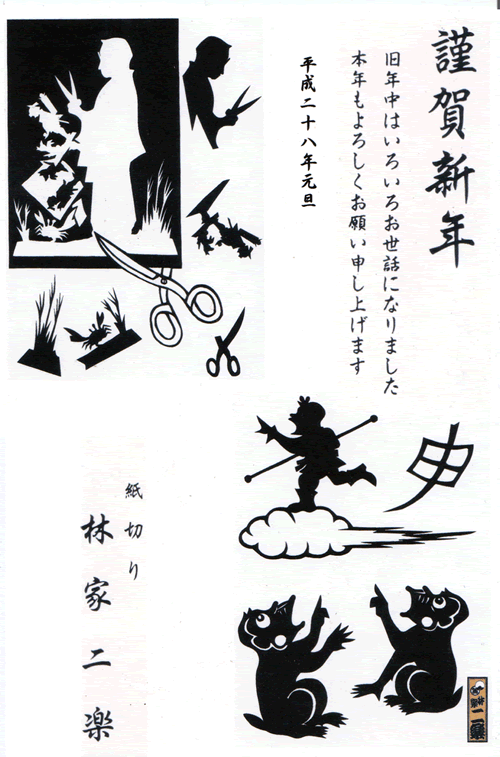 謹賀新年
旧年中はいろいろお世話になりました
本年もよろしくお願い申し上げます
平成二十八年元旦
申
紙切り
林家二楽